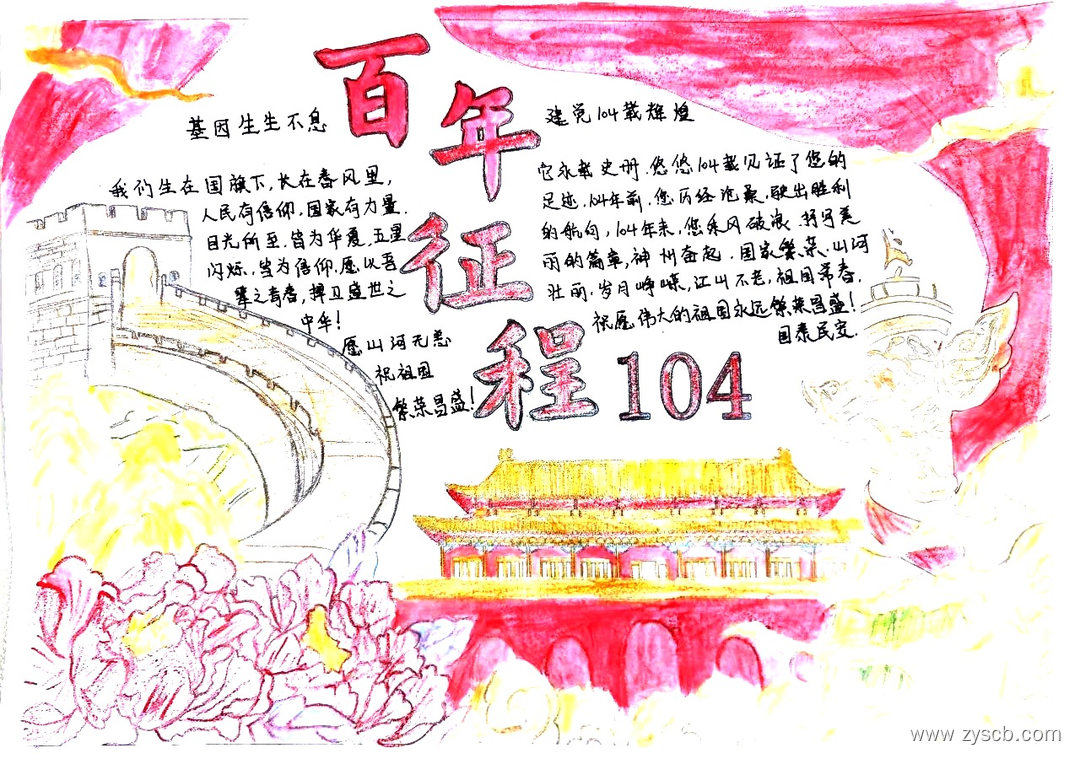 百年征程
104
基因生生不息
我们生在国旗下,长在春风里,
人民有信仰,国家有力量.
目光所至,皆为华夏,五星
闪烁,皆为信仰.愿以吾
辈之青春,捍卫盛世之
中华!
愿山河无恙
祝祖国
繁荣昌盛!
建党104载辉煌
它永载史册.悠悠104载见证了您的
足迹,104年前,您历经沧桑,驶出胜利
的航向,104年来,您乘风破浪.谱写美
丽的篇章,神州奋起,国家繁荣,山河
壮丽.岁月峥嵘,江山不老,祖国常春.
祝愿伟大的祖国永远繁荣昌盛!
国泰民安.
www.zyscb.com